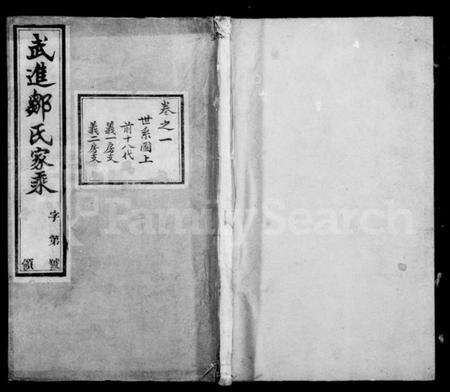 武進鄒氏家乘
字第 號
領
卷之一
世系圖上
前十八代
義一房支
義二房支
FamilySearch